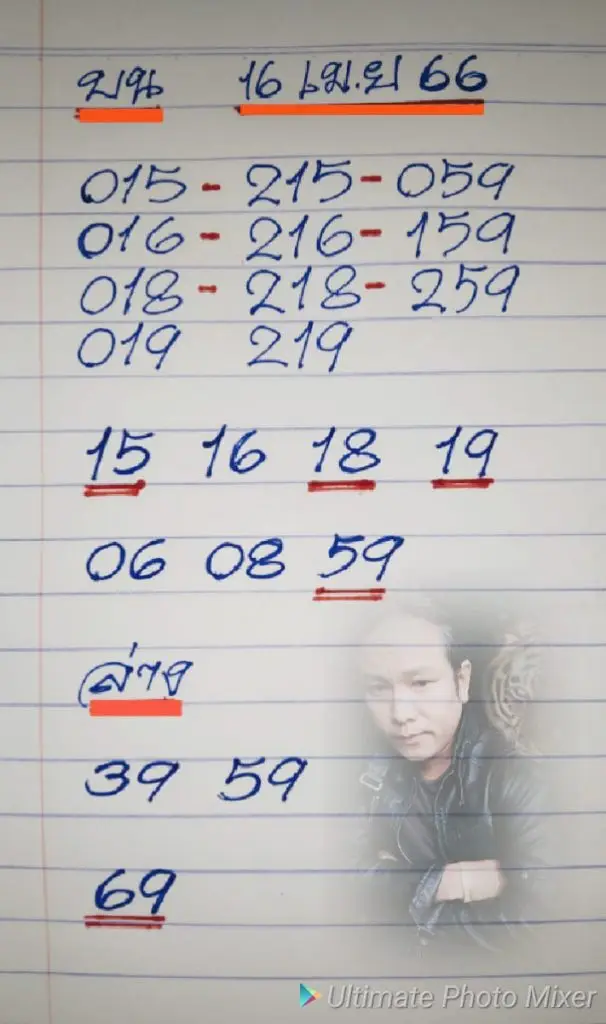 บน 16 เม.ย 66
015 - 215 - 059
016 - 216 - 159
018 - 218 - 259
019 219
15 16 18 19
06 08 59
ล่าง
39 59
69
Ultimate Photo Mixer